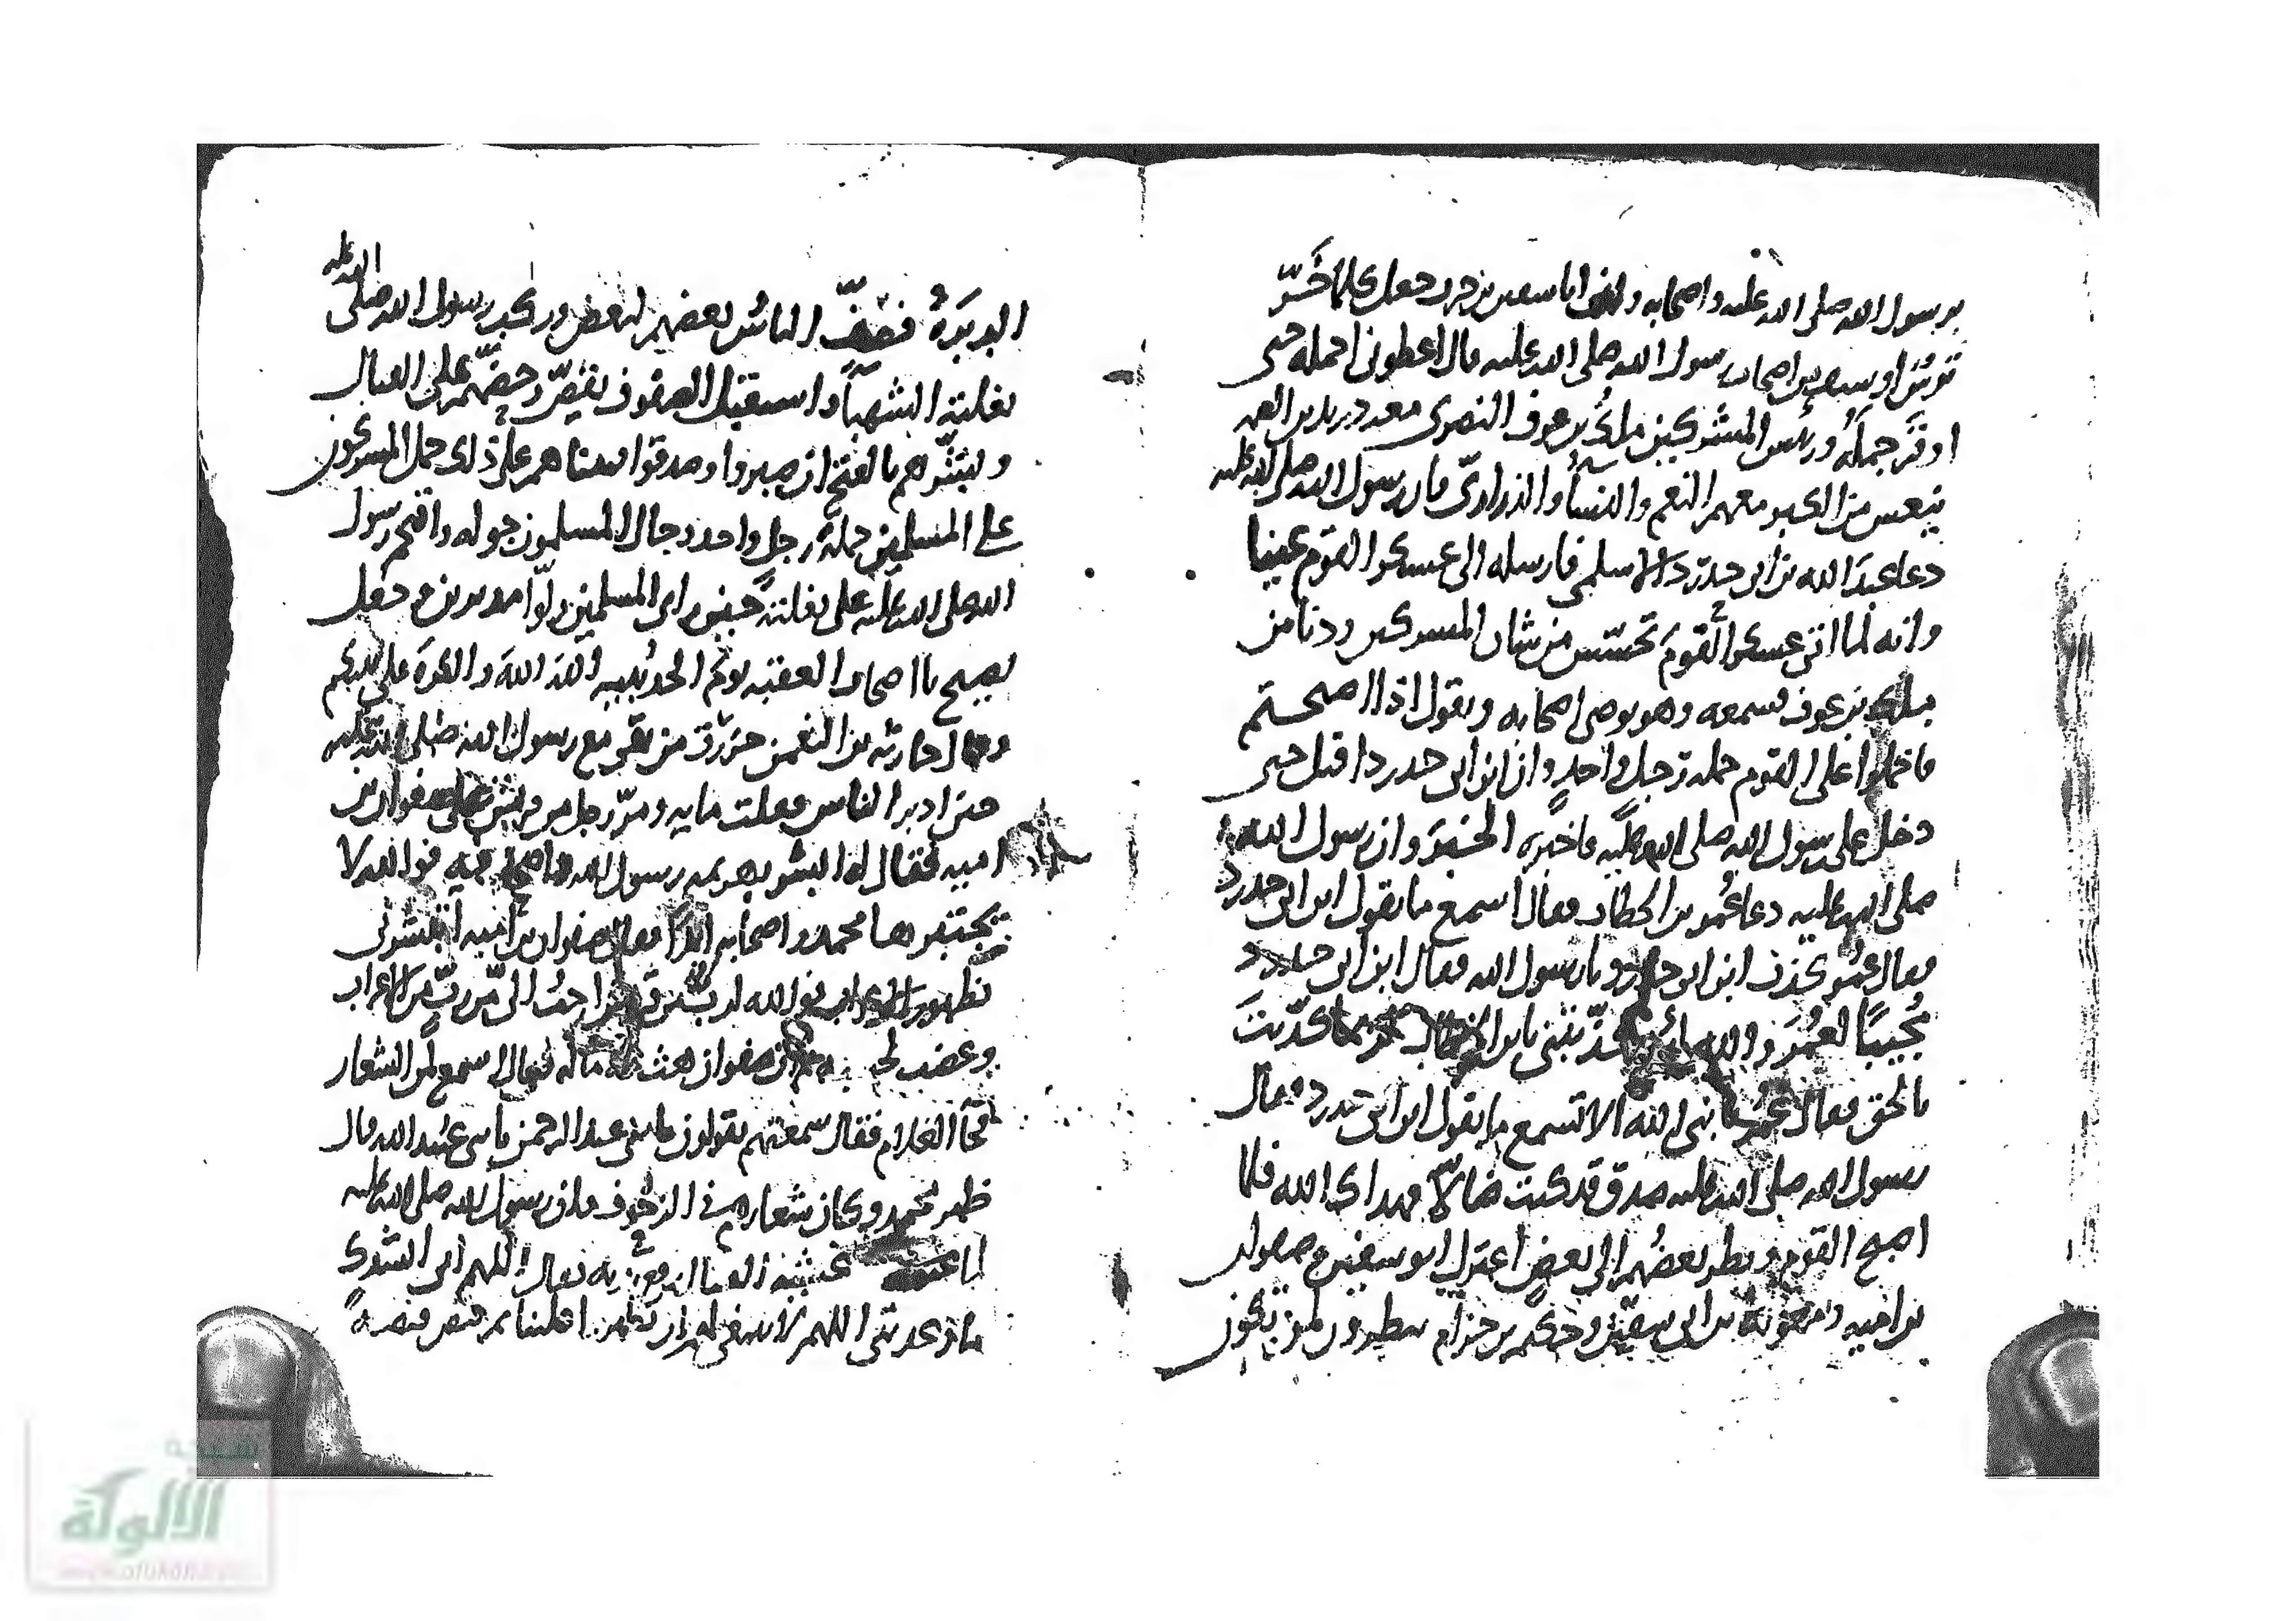 برسول الله صلى الله عليه واصحابه وان ابا سفين بن حرب جعل كلما خر
ترس او سيف من اصحاب رسول الله صلى الله عليه قال اعطونى احمله حتى
اوقر جمله ورئيس المشركين ملك بن عوف النصرى معه دريد بن الصمه
من الكبر معهم النعم والنسا والذرارى فان رسول الله صلى الله عليه
دعا عبد الله بن ابى حدرد الاسلمى فارسله الى عسكر القوم عينا
وانه لما اتى عسكر القوم تحسس من شان المشركين ودنا من
ملك بن عوف فسمعه وهو يوصى اصحابه ويقول اذا اصبحتم
فاحملوا على القوم حمله رجل واحد وان ابن ابى حدرد اقبل حتى
دخل على رسول الله صلى الله عليه فاخبره الخبر وان رسول الله
صلى الله عليه دعا عمر بن الخطاب فقال اسمع ما يقول ابن ابى حدرد
فقال عمر كذب ابن ابى حدرد يا رسول الله فقال ابن ابى حدرد
مجيبا لعمر والله لئن كذبتنى يا بن الخطاب لربما كذبت
بالحق فقال عمر يا نبى الله الا تسمع ما يقول ابن ابى حدرد فقال
رسول الله صلى الله عليه صدق قد كنت ضالا فهداك الله فلما
اصبح القوم ونظر بعضهم الى بعض اعتزل ابو سفين وصفوان
بن اميه ومعويه بن ابى سفين وحكيم بن حزام ينظرون لمن تكون
الدبرة فصف الناس بعضهم لبعض وركب رسول الله صلى الله عليه
بغلته الشهبا واستقبل الصفوف وحضهم على القتال
وبشرهم بالفتح ان صبروا وصدقوا فبينا هم على ذلك حمل المشركون
على المسلمين حملة رجل واحد وجال المسلمون جوله واقتحم رسول
الله صلى الله عليه على بغلته حين راى المسلمين ولوا مدبرين وجعل
يصيح يا اصحاب العقبه يوم الحديبيه الله الله والكرة على نبيكم
وقال حارثه بن النعمن حزرت من بقى مع رسول الله صلى الله عليه
حين ادبر الناس فقلت مايه ومر رجل من قريش على صفوان بن
اميه فقال له ابشر بهزيمه رسول الله واصحابه فوالله لا
يجتبرها محمد واصحابه ابدا فقال صفوان بن اميه ابتبشرنى
بظهور الاعراب فوالله لرب من قريش احب الى من رب من الاعراب
وغضب ان صفوان بعث غلاما له فقال اسمع لمن الشعار
فجا الغلام فقال سمعتهم يقولون يا بنى عبد الرحمن يا بنى عبيد الله قال
ظهر محمد وكان شعارهم فى الزحوف وان رسول الله صلى الله عليه
لما غشيه القتال رفع يديه فقال اللهم انى انشدك
ما وعدتنى اللهم لا ينبغى لهم ان يظهروا علينا ثم قبض قبضة